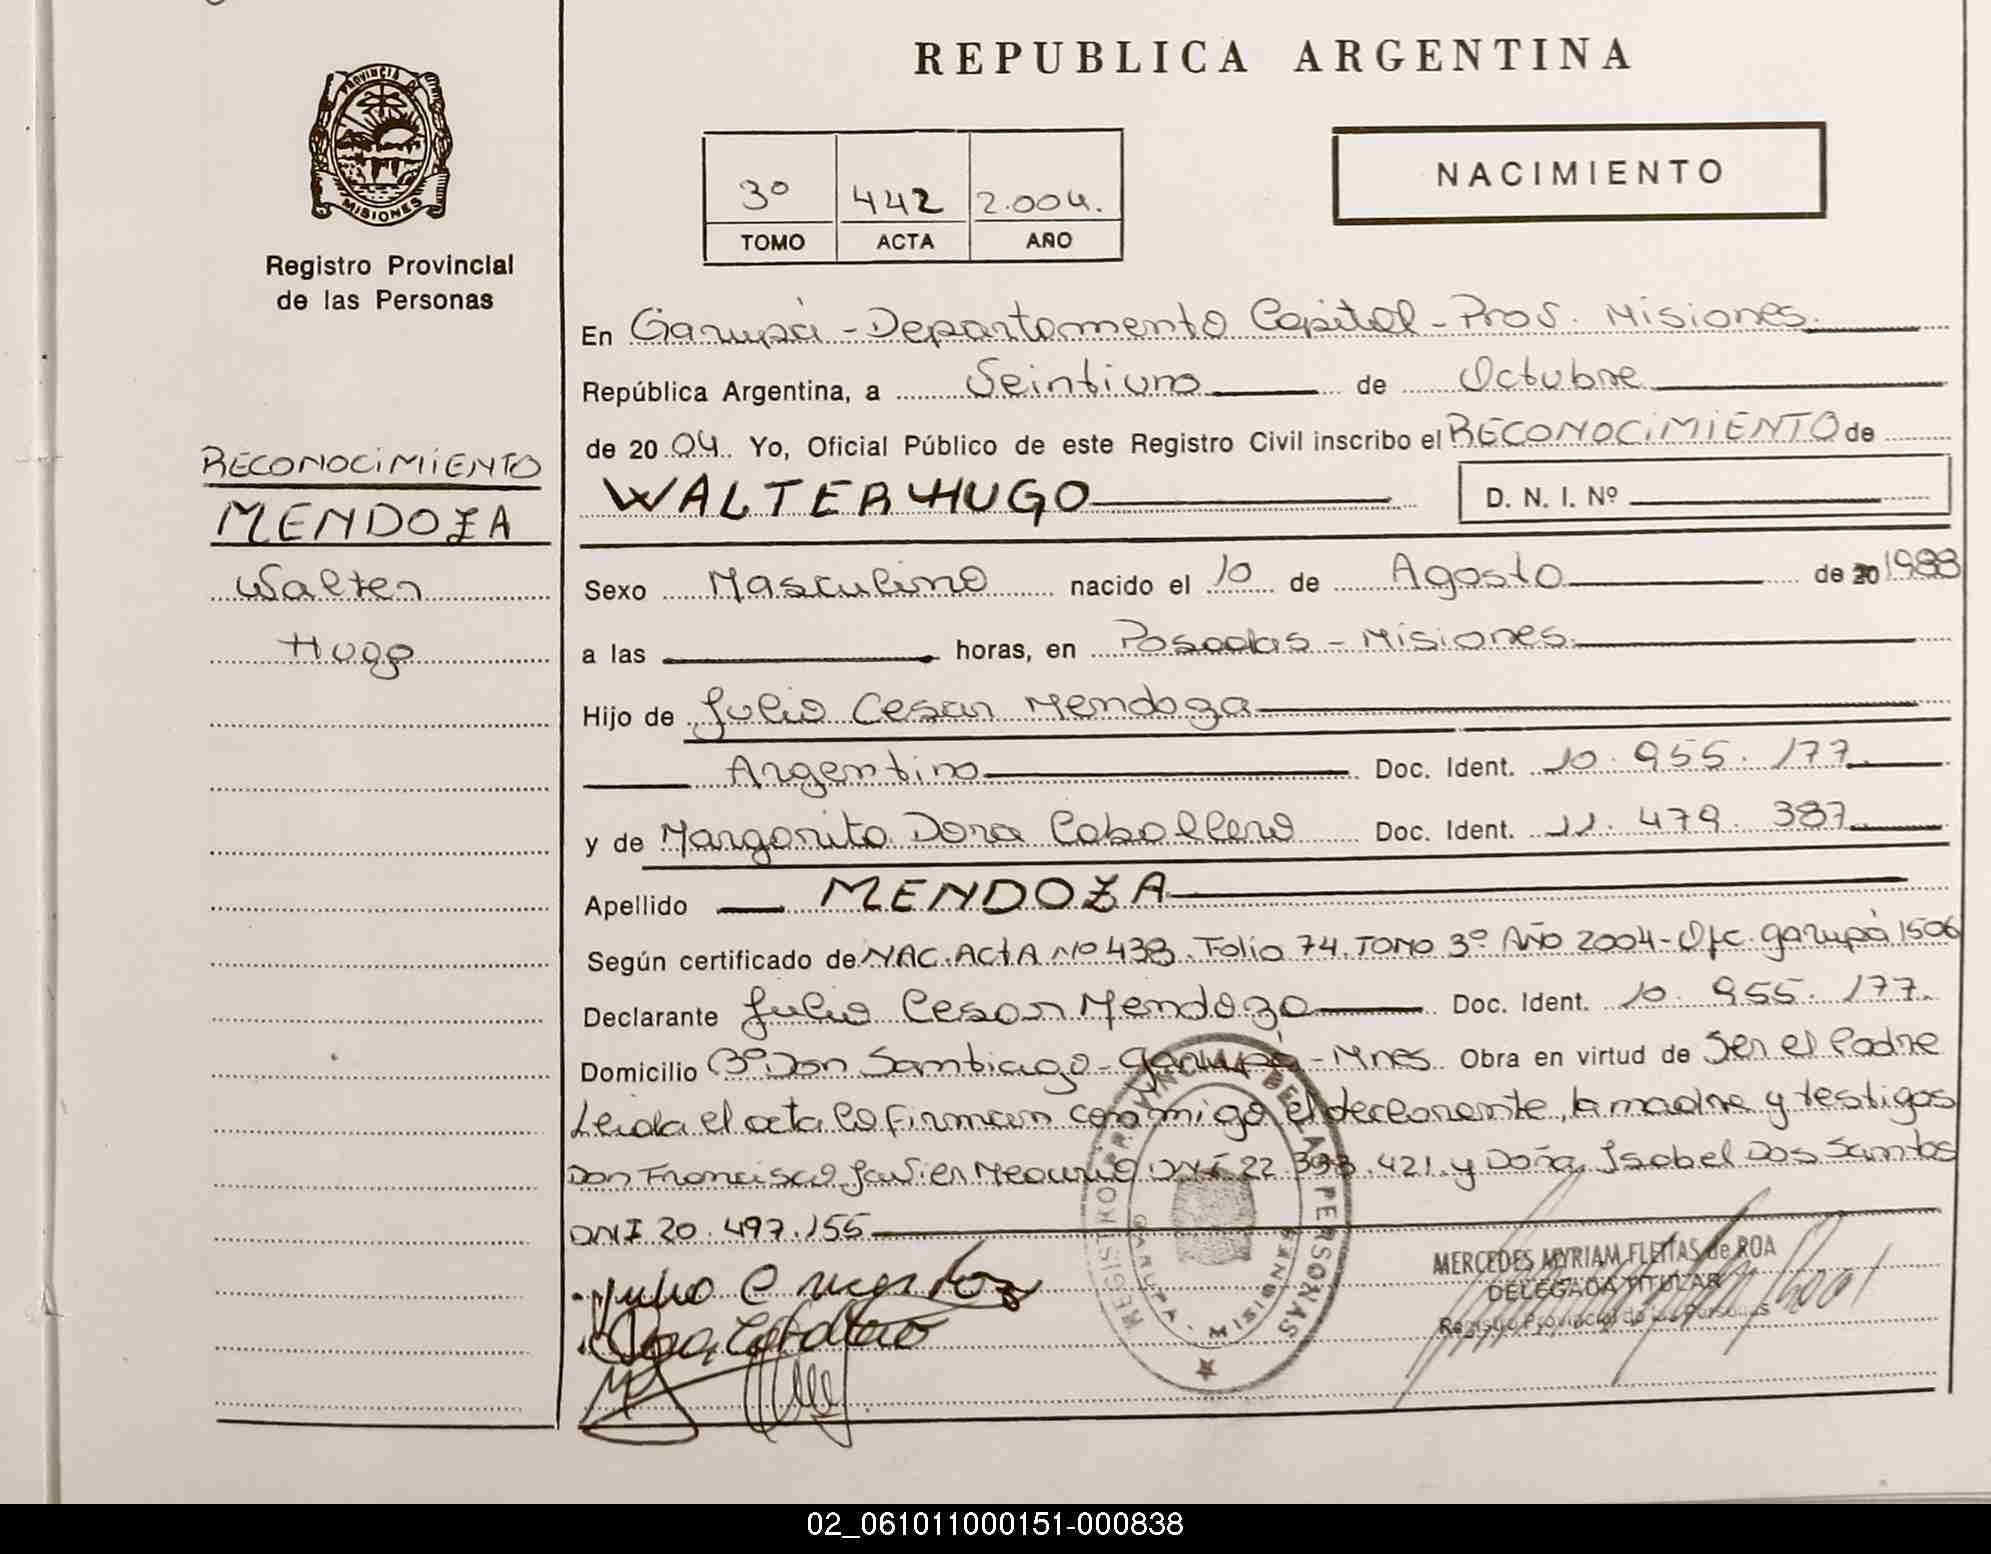 REPUBLICA ARGENTINA
PROVINCIA DE
MISIONES
Registro Provincial
de las Personas
3º 442 2.004.
TOMO ACTA AÑO
NACIMIENTO
RECONOCIMIENTO
MENDOZA
Walter
Hugo
En Garupá - Departamento Capital - Prov. Misiones.
República Argentina, a Veintiuno de Octubre
de 20 04. Yo, Oficial Público de este Registro Civil inscribo el RECONOCIMIENTO de
WALTER HUGO D. N. I. Nº
Sexo Masculino nacido el 10 de Agosto de 20 1988
a las horas, en Posadas - Misiones.
Hijo de Julio Cesar Mendoza
Argentino Doc. Ident. 10.955.177
y de Margarita Dora Caballero Doc. Ident. 11.479.387
Apellido MENDOZA
Según certificado de NAC. ACTA Nº 438. Folio 74. TOMO 3º AÑO 2004 - Ofc. garupá 1506
Declarante Julio Cesar Mendoza Doc. Ident. 10.955.177.
Domicilio Bº Don Santiago - Garupá - Mnes. Obra en virtud de Ser el Padre
Leida el acta la firman conmigo el declarante, la madre y testigos
Don Francisco Javier DNI 22.393.421. y Doña Isabel Dos Santos
DNI 20.497.155
Julio C Mendoza
Dora Caballero
REGISTRO PROVINCIAL DE LAS PERSONAS
GARUPA - MISIONES
MERCEDES MYRIAM FLEITAS de ROA
DELEGADA TITULAR
Registro Provincial de las Personas
02_061011000151-000838